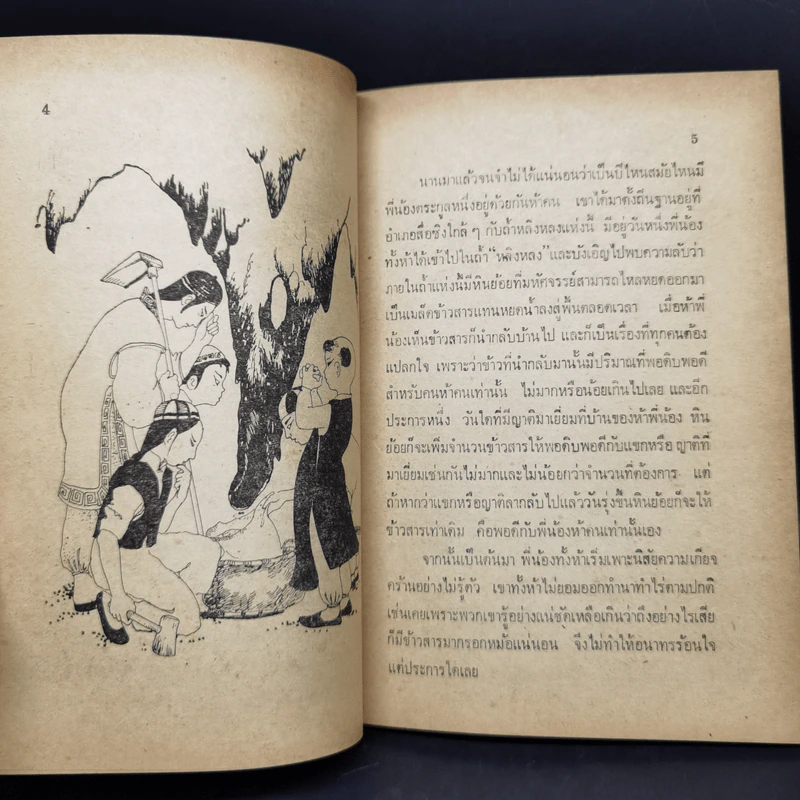 4
5
นานมาแล้วจนจำไม่ได้แน่นอนว่าเป็นปีไหนสมัยไหนมี
พี่น้องตระกูลหนึ่งอยู่ด้วยกันห้าคน เขาได้มาตั้งถิ่นฐานอยู่ที่
อำเภอสือซิงใกล้ ๆ กับถ้ำหลิงหลงแห่งนี้ มีอยู่วันหนึ่งพี่น้อง
ทั้งห้าได้เข้าไปในถ้ำ "หลิงหลง" และบังเอิญไปพบความลับว่า
ภายในถ้ำแห่งนี้มีหินย้อยที่มหัศจรรย์สามารถไหลหยดออกมา
เป็นเมล็ดข้าวสารแทนหยดน้ำลงสู่พื้นตลอดเวลา เมื่อห้าพี่
น้องเห็นข้าวสารก็นำกลับบ้านไป และก็เป็นเรื่องที่ทุกคนต้อง
แปลกใจ เพราะว่าข้าวที่นำกลับมานั้นมีปริมาณที่พอดิบพอดี
สำหรับคนห้าคนเท่านั้น ไม่มากหรือน้อยเกินไปเลย และอีก
ประการหนึ่ง วันใดที่มีญาติมาเยี่ยมที่บ้านของห้าพี่น้อง หิน
ย้อยก็จะเพิ่มจำนวนข้าวสารให้พอดิบพอดีกับแขกหรือ ญาติที่
มาเยี่ยมเช่นกันไม่มากและไม่น้อยกว่าจำนวนที่ต้องการ แต่
ถ้าหากว่าแขกหรือญาติลากลับไปแล้ววันรุ่งขึ้นหินย้อยก็จะให้
ข้าวสารเท่าเดิม คือพอดีกับพี่น้องห้าคนเท่านั้นเอง
จากนั้นเป็นต้นมา พี่น้องทั้งห้าเริ่มเพาะนิสัยความเกียจ
คร้านอย่างไม่รู้ตัว เขาทั้งห้าไม่ยอมออกทำนาทำไร่ตามปกติ
เช่นเคยเพราะพวกเขารู้อย่างแน่ชัดเหลือเกินว่าถึงอย่างไรเสีย
ก็มีข้าวสารมากรอกหม้อแน่นอน จึงไม่ทำให้อนาทรร้อนใจ
แต่ประการใดเลย